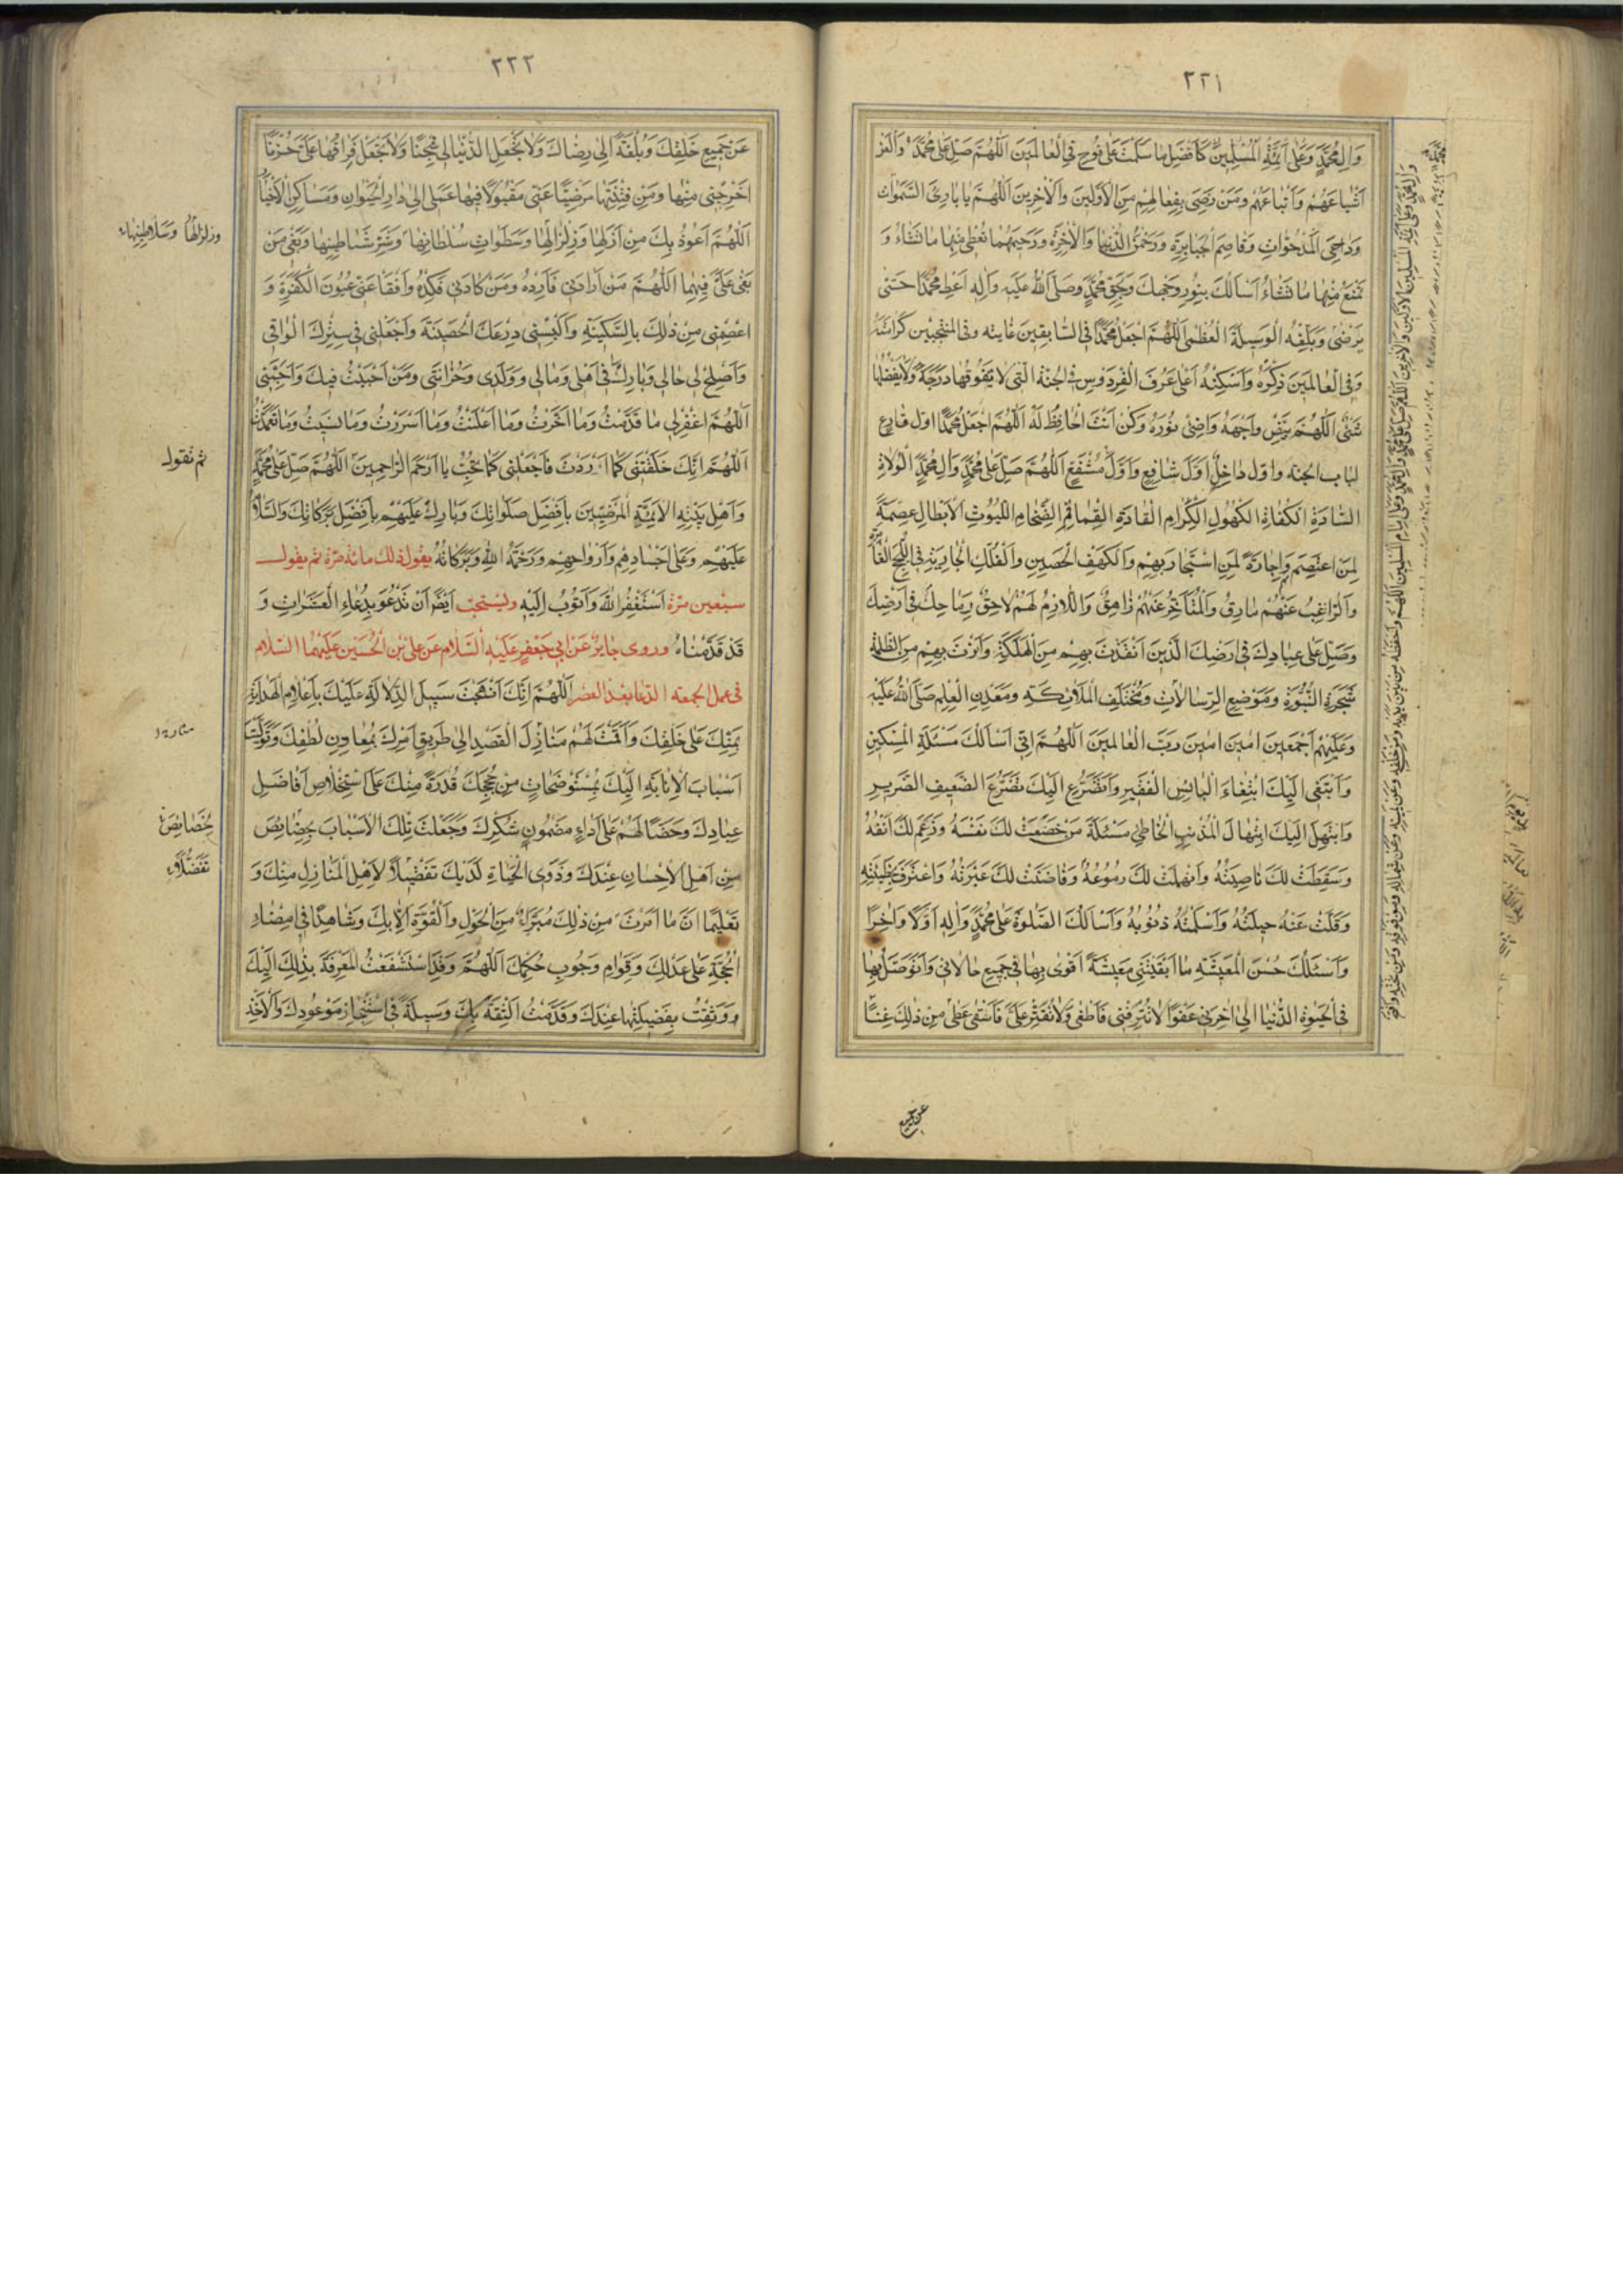 ٢٢١
وَالِ مُحَمَّدٍ وَعَلى اَئِمَّةِ الْمُسْلِمِينَ كَاَفْضَلِ ما سَلَّمْتَ عَلى نُوحٍ فِي الْعالَمِينَ اَللّهُمَّ صَلِّ عَلى مُحَمَّدٍ
اَشْياعَهُمْ وَاَتْباعَهُمْ وَمَنْ رَضِيَ بِفِعالِهِمْ مِنَ الْاَوَّلِينَ وَالْاخِرِينَ اَللّهُمَّ يا بارِئَ السَّمَواتِ
وَداحِيَ الْمَدْحُوّاتِ وَقاصِمَ الْجَبابِرَةِ وَرَحْمنَ الدُّنْيا وَالْاخِرَةِ وَرَحِيمَهُما تُعْطِي مِنْهُما ما تَشاءُ وَ
تَمْنَعُ مِنْهُما ما تَشاءُ اَسْاَلُكَ بِنُورِ وَجْهِكَ وَبِحَقِّ مُحَمَّدٍ وَصَلَّى اللهُ عَلَيْهِ وَالِهِ اَعْطِ مُحَمَّدًا حَتّى
يَرْضى وَبَلِّغْهُ الْوَسِيلَةَ الْعُظْمى اَللّهُمَّ اجْعَلْ مُحَمَّدًا فِي السّابِقِينَ غايته وَفِي الْمُنْتَجَبِينَ كَرامَتَهُ
وَفِي الْعالَمِينَ ذِكْرَهُ وَاَسْكِنْهُ اَعْلى غُرَفِ الْفِرْدَوْسِ فِي الْجَنَّةِ الَّتِي لا يَفُوقُها دَرَجَةٌ وَلا يَفْضُلُها
شَيْءٌ اَللّهُمَّ بَيِّضْ وَجْهَهُ وَاَضِئْ نُورَهُ وَكُنْ اَنْتَ الْحافِظُ لَهُ اَللّهُمَّ اجْعَلْ مُحَمَّدًا اَوَّلَ قارِعٍ
لباب الجنة واوّل داخِلٍ اَوَّلَ شافِعٍ وَاَوَّلَ مُشَفَّعٍ اَللّهُمَّ صَلِّ عَلى مُحَمَّدٍ وَالِ مُحَمَّدٍ الْوُلاةِ
السّادَةِ الْكُفاةِ الْكُهُولِ الْكِرامِ الْقادَةِ الْقَماقِمِ الضِّخامِ اللُّيُوثِ الْاَبْطالِ عِصْمَةً
لِمَنِ اعْتَصَمَ وَاِجارَةً لِمَنِ اسْتَجارَ بِهِمْ وَالْكَهْفِ الْحَصِينِ وَالْفُلْكِ الْجارِيَةِ فِي اللُّجَجِ
وَالرّاغِبُ عَنْهُمْ مارِقٌ وَالْمُتَاَخِّرُ عَنْهُمْ زاهِقٌ وَاللّازِمُ لَهُمْ لاحِقٌ وَرِماحِكَ فِي اَرْضِكَ
وَصَلِّ عَلى عِبادِكَ فِي اَرْضِكَ الَّذِينَ اَنْقَذْتَ بِهِمْ مِنَ الْهَلَكَةِ وَاَنَرْتَ بِهِمْ مِنَ الظُّلْمَةِ
شَجَرَةِ النُّبُوَّةِ وَمَوْضِعِ الرِّسالاتِ وَمُخْتَلَفِ الْمَلائِكَةِ وَمَعْدِنِ الْعِلْمِ صَلَّى اللهُ عَلَيْهِ
وَعَلَيْهِمْ اَجْمَعِينَ امِينَ امِينَ رَبَّ الْعالَمِينَ اَللّهُمَّ اِنِّي اَسْاَلُكَ مَسْئَلَةَ الْمِسْكِينِ
وَاَبْتَغِي اِلَيْكَ ابْتِغاءَ الْبائِسِ الْفَقِيرِ وَاَتَضَرَّعُ اِلَيْكَ تَضَرُّعَ الضَّعِيفِ الضَّرِيرِ
وَاَبْتَهِلُ اِلَيْكَ ابْتِهالَ الْمُذْنِبِ الْخاطِئِ مَسْئَلَةَ مَنْ خَضَعَتْ لَكَ نَفْسُهُ وَرَغِمَ لَكَ اَنْفُهُ
وَسَقَطَتْ لَكَ ناصِيَتُهُ وَانْهَمَلَتْ لَكَ دُمُوعُهُ وَفاضَتْ لَكَ عَبْرَتُهُ وَاعْتَرَفَ بِخَطِيئَتِهِ
وَقَلَّتْ عَنْهُ حِيلَتُهُ وَاَسْلَمَتْهُ ذُنُوبُهُ وَاَسْاَلُكَ الصَّلوةَ عَلى مُحَمَّدٍ وَالِهِ اَوَّلًا وَاخِرًا
وَاَسْئَلُكَ حُسْنَ الْمَعِيشَةِ ما اَبْقَيْتَنِي مَعِيشَةً اَقْوى بِها فِي جَمِيعِ حالاتِي وَاَتَوَصَّلُ بِها
فِي الْحَيوةِ الدُّنْيا اِلى اخِرَتِي عَفْوًا لا تُتْرِفْنِي فَاَطْغى وَلا تُقَتِّرْ عَلَيَّ فَاَشْقى اَعْطِنِي مِنْ ذلِكَ غِنًى
عن جميع
٢٢٢
عَنْ جَمِيعِ خَلْقِكَ وَبُلْغَةً اِلى رِضاكَ وَلا تَجْعَلِ الدُّنْيا لِي سِجْنًا وَلا تَجْعَلْ فِراقَها عَلَيَّ حُزْنًا
اَخْرِجْنِي مِنْها وَمِنْ فِتْنَتِها مَرْضِيًّا عَنِّي مَقْبُولًا فِيها عَمَلِي اِلى دارِ الْحَيَوانِ وَمَساكِنِ الْاَخْيارِ
اَللّهُمَّ اَعُوذُ بِكَ مِنْ اَزْلِها وَزِلْزالِها وَسَطَواتِ سُلْطانِها وَشَرِّ شَياطِينِها وَبَغْيِ مَنْ
بَغى عَلَيَّ فِيهَا اَللّهُمَّ مَنْ اَرادَنِي فَاَرِدْهُ وَمَنْ كادَنِي فَكِدْهُ وَافْقَأْ عَنِّي عُيُونَ الْكَفَرَةِ وَ
اعْصِمْنِي مِنْ ذلِكَ بِالسَّكِينَةِ وَاَلْبِسْنِي دِرْعَكَ الْحَصِينَةَ وَاجْعَلْنِي فِي سِتْرِكَ الْواقِي
وَاَصْلِحْ لِي حالِي وَبارِكْ فِي اَهْلِي وَمالِي وَوَلَدِي وَحُزانَتِي وَمَنْ اَحْبَبْتُ فِيكَ وَاَحَبَّنِي
اَللّهُمَّ اغْفِرْ لِي ما قَدَّمْتُ وَما اَخَّرْتُ وَما اَعْلَنْتُ وَما اَسْرَرْتُ وَما نَسِيتُ وَما تَعَمَّدْتُ
ثم تقول
اَللّهُمَّ اِنَّكَ خَلَقْتَنِي كَما اَرَدْتَ فَاجْعَلْنِي كَما تُحِبُّ يا اَرْحَمَ الرّاحِمِينَ اَللّهُمَّ صَلِّ عَلى مُحَمَّدٍ
وَاَهْلِ بَيْتِهِ الْاَئِمَّةِ الْمَرْضِيِّينَ بِاَفْضَلِ صَلَواتِكَ وَبارِكْ عَلَيْهِمْ بِاَفْضَلِ بَرَكاتِكَ وَالسَّلامُ
عَلَيْهِمْ وَعَلى اَجْسادِهِمْ وَاَرْواحِهِمْ وَرَحْمَةُ اللهِ وَبَرَكاتُهُ يقول ذلك مائة مرّة ثم يقول
سبعين مرّة اَسْتَغْفِرُ اللهَ وَاَتُوبُ اِلَيْهِ ويستحبّ اَيْضًا اَنْ تَدْعُوَ بِدُعاءِ الْعَشَراتِ وَ
قَدْ قَدَّمْناهُ وروى جابِرٌ عَنْ اَبِي جَعْفَرٍ عَلَيْهِ السَّلامُ عَنْ عَلِيِّ بْنِ الْحُسَيْنِ عَلَيْهِمَا السَّلام
في عمل الجمعة الدعا بعد العصر اَللّهُمَّ اِنَّكَ اَنْهَجْتَ سَبِيلَ الدِّلالَةِ عَلَيْكَ بِاَعْلامِ الْهِدايَةِ
بِمَنِّكَ عَلى خَلْقِكَ وَاَقَمْتَ لَهُمْ مَنازِلَ الْقَصْدِ اِلى طَرِيقِ اَمْرِكَ بِمَعاوِنِ لُطْفِكَ وَتَوَلَّيْتَ
اَسْبابَ الْاِنابَةِ اِلَيْكَ بِمُسْتَوْضَحاتٍ مِنْ حُجَجِكَ قُدْرَةً مِنْكَ عَلَى اسْتِخْلاصِ اَفاضِلِ
عِبادِكَ وَحَضًّا لَهُمْ عَلى اَداءِ مَضْمُونِ شُكْرِكَ وَجَعَلْتَ تِلْكَ الْاَسْبابَ بِخَصائِصَ
مِنْ اَهْلِ الْاِحْسانِ عِنْدَكَ وَذَوِي الْحِباءِ لَدَيْكَ تَفْضِيلًا لِاَهْلِ الْمَنازِلِ مِنْكَ وَ
تَعْلِيمًا اَنَّ ما اَمَرْتَ مِنْ ذلِكَ مُبَرَّءٌ مِنَ الْحَوْلِ وَالْقُوَّةِ اِلّا بِكَ وَشاهِدًا فِي اِمْضاءِ
الْحُجَّةِ عَلى عَدْلِكَ وَقَوامِ وُجُوبِ حُكْمِكَ اَللّهُمَّ وَقَدِ اسْتَشْفَعْتُ الْمَعْرِفَةَ بِذلِكَ اِلَيْكَ
وَوَثِقْتُ بِفَضِيلَتِها عِنْدَكَ وَقَدَّمْتُ الثِّقَةَ بِكَ وَسِيلَةً فِي اسْتِنْجازِ مَوْعُودِكَ وَالْاَخْذِ
وزلزالها وسلاطينها
خصائص
تفضلا